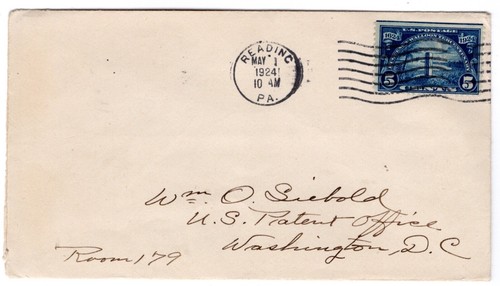 READING
MAY 1
1924
10 AM
PA.
U.S. POSTAGE
1624 1924
HUGUENOT-WALLOON TERCENTENARY
5 5
Wm. O. Siebold
U.S. Patent Office
Washington, D.C
Room 179